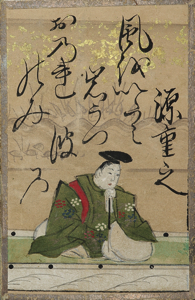 源重之
風をいたみ
岩うつ
波の
おのれ
のみ